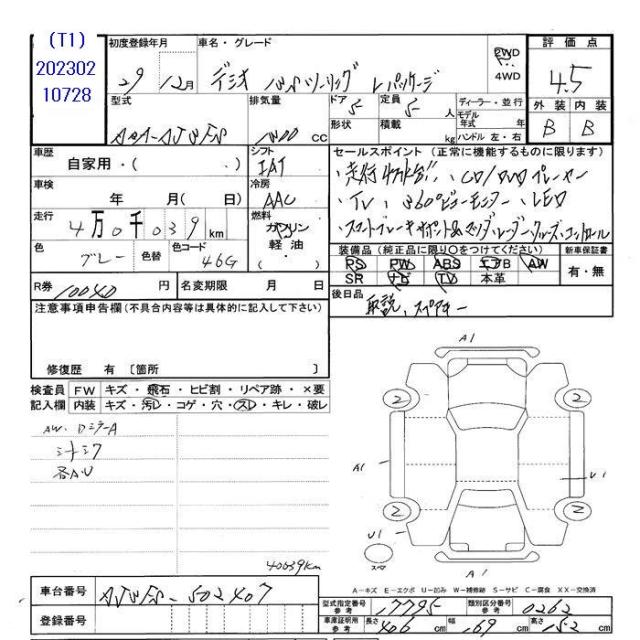 (T1)
202302
10728
初度登録年月
29 12月
車名・グレード
デミオ
2WD
4WD
評価点
4.5
外装 内装
B B
型式
排気量
CC
ドア 5
形状
定員 5 人
積載 kg
ディーラー・並行
モデル年式 年
ハンドル 左・右
車歴
自家用・( )
シフト
IAT
冷房
AAC
燃料
ガソリン
軽油
・( )
車検 年 月( 日)
走行
4万0千039km
色
グレー
色替
色コード
46G
R券 10040 円
名変期限 月 日
セールスポイント(正常に機能するものに限ります)
・走行4万km台!!、CD/DVDプレーヤー
・TV、360°ビューモニター、LED
装備品(純正品に限り〇をつけてください)
PS PW ABS エアB AW
SR ナビ TV 本革
新車保証書
有・無
後日品
取説、スペアキー
注意事項申告欄(不具合内容等は具体的に記入して下さい)
修復歴 有 〔箇所 〕
検査員記入欄
FW キズ・飛石・ヒビ割・リペア跡・×要
内装 キズ・汚レ・コゲ・穴・スレ・キレ・破レ
各A・U
40039km
A1
2
2
A1
U1
2
2
U1
スペア
A1
車台番号
DJ5FS-502407
登録番号
A-キズ E-エクボ U-凹み W-補修跡 S-サビ C-腐食 XX-交換済
型式指定番号参考 17795
類別区分番号参考 0262
車庫証明用参考
長さ 406 cm
幅 169 cm
高さ 152 cm